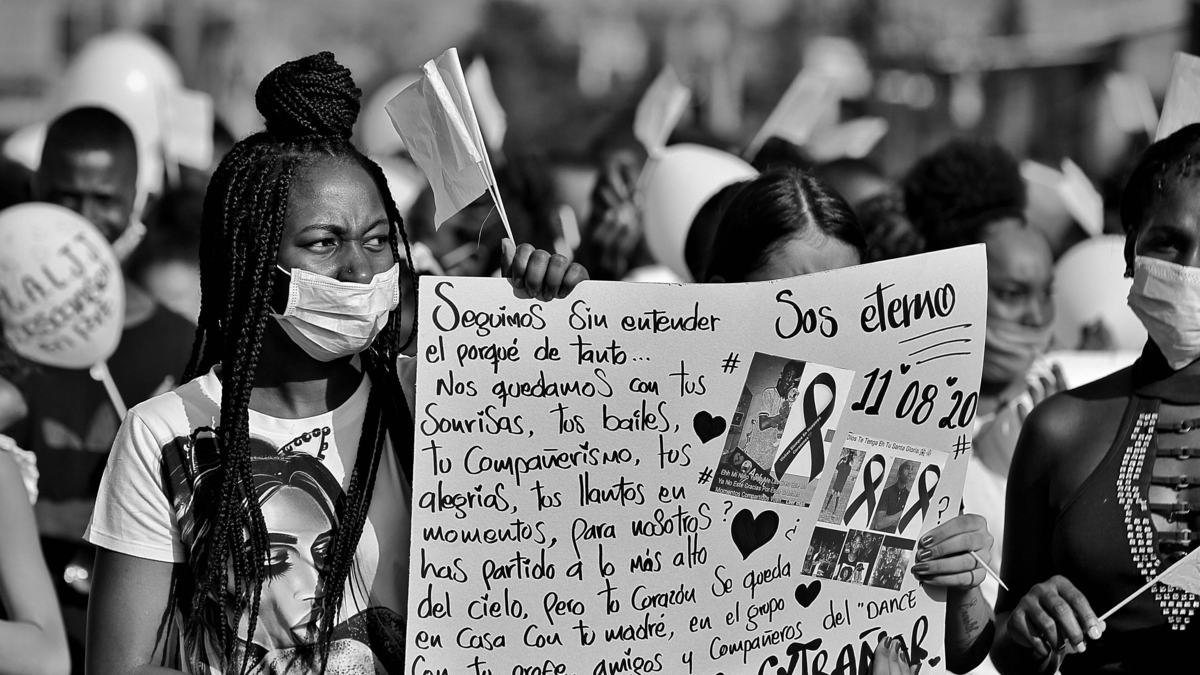 Seguimos Sin entender
el porqué de tanto...
Nos quedamos con tus
Sonrisas, tus bailes,
tu Compañerismo, tus
alegrias, tus llantos en
momentos, para nosotros
has partido a lo más alto
del cielo, pero tu Corazón Se queda
en Casa Con tu madre, en el grupo
Con tu profe, amigos y Compañeros del "DANCE
EXTRAÑAR
Sos eterno
11'08'20
#
#
#
?
¿
?
Dios Te Tenga En Tu Santa Gloria
Ya No Este Gracias Por
Momentos Compartidos